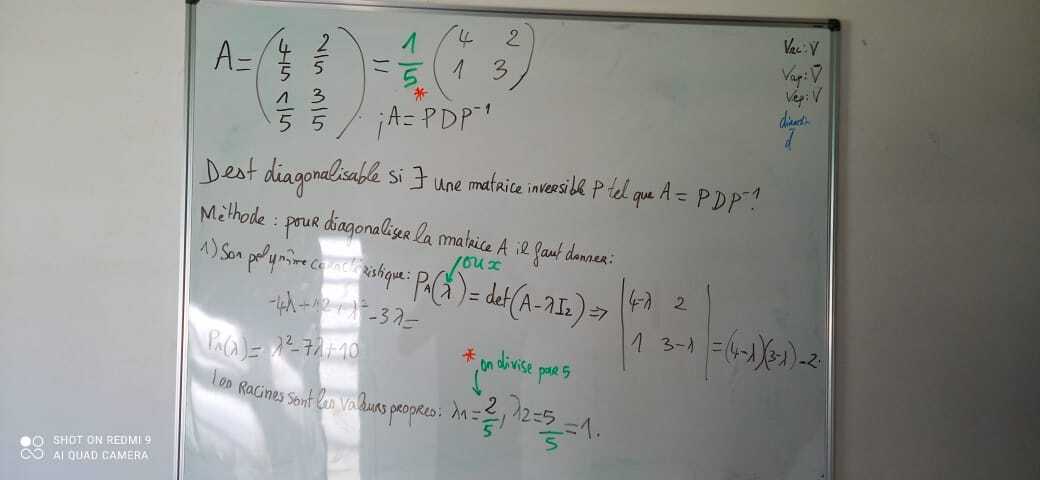 A = (4/5 2/5 1/5 3/5) = 1/5 (4 2 1 3)
* ; A = PDP⁻¹
Vac: V
Vap: V
Vep: V
D est diagonalisable si ∃ une matrice inversible P tel que A = PDP⁻¹.
Méthode : pour diagonaliser la matrice A il faut donner:
1) Son polynîme caractéristique: P_A(λ) = det(A-λI₂) ⇒ |4-λ 2 1 3-λ| = (4-λ)(3-λ)-2.
ou x
-4λ+12+λ²-3λ=
P_A(λ) = λ²-7λ+10
* on divise par 5
Les Racines sont les valeurs propres: λ1=2/5, λ2=5/5=1.
SHOT ON REDMI 9
AI QUAD CAMERA